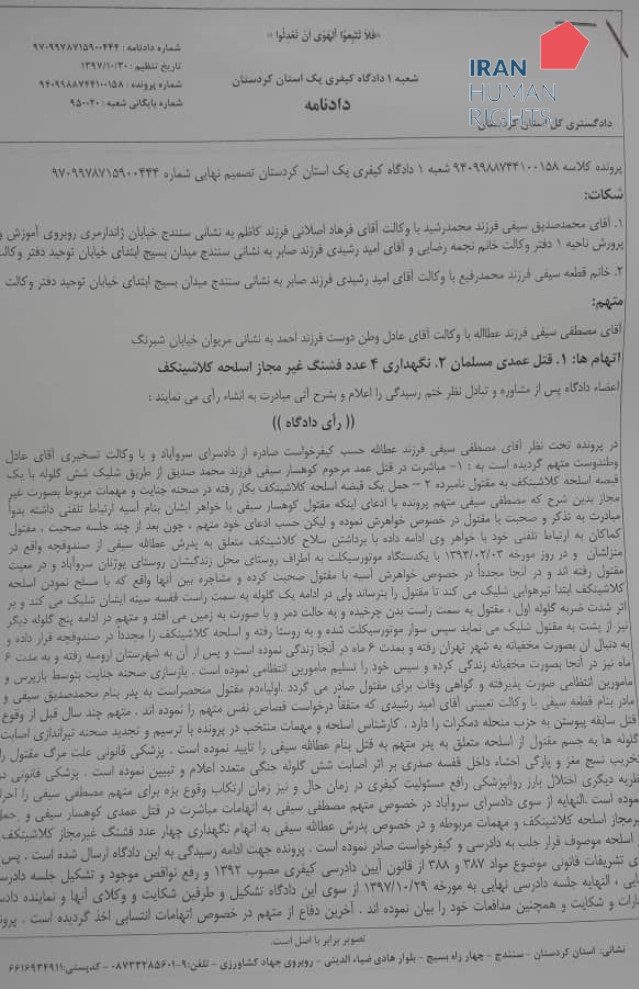 «فَلاَ تَتَّبِعُوا الْهَوَى أَنْ تَعْدِلُوا»
IRAN
HUMAN
RIGHTS
شماره دادنامه : ۹۷۰۹۹۷۸۷۱۵۹۰۰۴۴۴
تاریخ تنظیم : ۱۳۹۷/۱۰/۳۰
شماره پرونده : ۹۴۰۹۹۸۸۷۴۴۱۰۰۱۵۸
شماره بایگانی شعبه : ۹۵۰۰۲۰
شعبه ۱ دادگاه کیفری یک استان کردستان
دادنامه
دادگستری کل استان کردستان
پرونده کلاسه ۹۴۰۹۹۸۸۷۴۴۱۰۰۱۵۸ شعبه ۱ دادگاه کیفری یک استان کردستان تصمیم نهایی شماره ۹۷۰۹۹۷۸۷۱۵۹۰۰۴۴۴
شکات:
۱. آقای محمدصدیق سیفی فرزند محمدرشید با وکالت آقای فرهاد اصلانی فرزند کاظم به نشانی سنندج خیابان ژاندارمری روبروی آموزش و
پرورش ناحیه ۱ دفتر وکالت خانم نجمه رضایی و آقای امید رشیدی فرزند صابر به نشانی سنندج میدان بسیج ابتدای خیابان توحید دفتر وکالت
۲. خانم قطعه سیفی فرزند محمدرفیع با وکالت آقای امید رشیدی فرزند صابر به نشانی سنندج میدان بسیج ابتدای خیابان توحید دفتر وکالت
متهم:
آقای مصطفی سیفی فرزند عطااله با وکالت آقای عادل وطن دوست فرزند احمد به نشانی مریوان خیابان شبرنگ
اتهام ها: ۱. قتل عمدی مسلمان ۲. نگهداری ۴ عدد فشنگ غیر مجاز اسلحه کلاشینکف
اعضاء دادگاه پس از مشاوره و تبادل نظر ختم رسیدگی را اعلام و بشرح آتی مبادرت به انشاء رأی می نمایند :
(( رأی دادگاه ))
در پرونده تحت نظر آقای مصطفی سیفی فرزند عطاالله حسب کیفرخواست صادره از دادسرای سروآباد و با وکالت تسخیری آقای عادل
وطندوست متهم گردیده است به : ۱- مباشرت در قتل عمد مرحوم کوهسار سیفی فرزند محمد صدیق از طریق شلیک شش گلوله با یک
قبضه اسلحه کلاشینکف به مقتول نامبرده ۲ – حمل یک قبضه اسلحه کلاشینکف بکار رفته در صحنه جنایت و مهمات مربوط بصورت غیر
مجاز بدین شرح که مصطفی سیفی متهم پرونده با ادعای اینکه مقتول کوهسار سیفی با خواهر ایشان بنام آسیه ارتباط تلفنی داشته بدواً
مبادرت به تذکر و صحبت با مقتول در خصوص خواهرش نموده و لیکن حسب ادعای خود متهم ، چون بعد از چند جلسه صحبت ، مقتول
کماکان به ارتباط تلفنی خود با خواهر وی ادامه داده با برداشتن سلاح کلاشینکف متعلق به پدرش عطالله سیفی از صندوقچه واقع در
منزلشان و در روز مورخه ۱۳۹۴/۰۲/۰۳ با یکدستگاه موتورسیکلت به اطراف روستای محل زندگیشان روستای یوژنان سروآباد و در معیت
مقتول رفته اند و در آنجا مجدداً در خصوص خواهرش آسیه با مقتول صحبت کرده و مشاجره بین آنها واقع که با مسلح نمودن اسلحه
کلاشینکف ابتدا تیرهوایی شلیک می کند تا مقتول را بترساند ولی در ادامه یک گلوله به سمت راست قفسه سینه ایشان شلیک می کند و بر
اثر شدت ضربه گلوله اول ، مقتول به سمت راست بدن چرخیده و به حالت دمر و با صورت به زمین می افتد و متهم در ادامه پنج گلوله دیگر
نیز از پشت به مقتول شلیک می نماید سپس سوار موتورسیکلت شده و به روستا رفته و اسلحه کلاشینکف را مجدداً در صندوقچه قرار داده و
به دنبال آن بصورت مخفیانه به شهر تهران رفته و بمدت ۶ ماه در آنجا زندگی نموده است و پس از آن به شهرستان ارومیه رفته و به مدت ۶
ماه نیز در آنجا بصورت مخفیانه زندگی کرده و سپس خود را تسلیم مامورین انتظامی نموده است . بازسازی صحنه جنایت بتوسط بازپرس و
مامورین انتظامی صورت پذیرفته و گواهی وفات برای مقتول صادر می گردد .اولیاءدم مقتول منحصراست به پدر بنام محمدصدیق سیفی و
مادر بنام قطعه سیفی با وکالت تعیینی آقای امید رشیدی که متفقاً درخواست قصاص نفس متهم را نموده اند . متهم چند سال قبل از وقوع
قتل سابقه پیوستن به حزب منحله دمکرات را دارد . کارشناس اسلحه و مهمات منتخب در پرونده با ترسیم و تجدید صحنه تیراندازی اصابت
گلوله ها به جسم مقتول از اسلحه متعلق به پدر متهم به قتل بنام عطالله سیفی را تایید نموده است . پزشکی قانونی علت مرگ مقتول را
تخریب نسج مغز و پارگی احشاء داخل قفسه صدری بر اثر اصابت شش گلوله جنگی متعدد اعلام و تبیین نموده است . پزشکی قانونی در
نظریه دیگری اختلال بارز روانپزشکی رافع مسئولیت کیفری در زمان حال و نیز زمان ارتکاب وقوع بزه برای متهم مصطفی سیفی را احراز
نموده است .النهایه از سوی دادسرای سروآباد در خصوص متهم مصطفی سیفی به اتهامات مباشرت در قتل عمدی کوهسار سیفی و حمل
غیرمجاز اسلحه کلاشینکف و مهمات مربوطه و در خصوص پدرش عطالله سیفی به اتهام نگهداری چهار عدد فشنگ غیرمجاز کلاشینکف
اسلحه موصوف قرار جلب به دادرسی و کیفرخواست صادر نموده است . پرونده جهت ادامه رسیدگی به این دادگاه ارسال شده است . پس
ی تشریفات قانونی موضوع مواد ۳۸۷ و ۳۸۸ از قانون آیین دادرسی کیفری مصوب ۱۳۹۲ و رفع نواقص موجود و تشکیل جلسه دادرسی
، النهایه جلسه دادرسی نهایی به مورخه ۱۳۹۷/۱۰/۲۹ از سوی این دادگاه تشکیل و طرفین شکایت و وکلای آنها و نماینده
و شکایت و همچنین مدافعات خود را بیان نموده اند . آخرین دفاع از متهم در خصوص اتهامات انتسابی اخذ گردیده است .
تصویر برابر با اصل است.
نشانی: استان کردستان - سنندج - چهار راه بسیج - بلوار هادی ضیاء الدینی - روبروی جهاد کشاورزی - تلفن:۹-۰۸۷۳۳۲۸۵۶۰۱ - کدپستی:۶۶۱۶۹۳۴۹۱۱